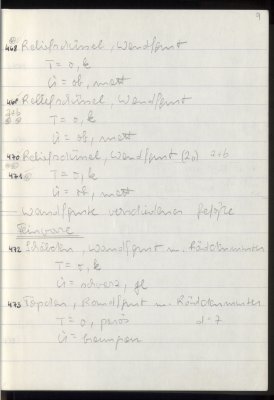 9
468 Reliefschüssel, Wandfgmt
T = o, k
Ü = ob, matt
469 Reliefschüssel, Wandfgmt
a+b
T = o, k
Ü = ob, matt
470 Reliefschüssel, Wandfgmt (2x) a+b
471
T = o, k
Ü = ob, matt
Wandfgmte verschiedener Gefäße
Feinware
472 Wandfgmt m. Rädchenmuster
T = o, k
Ü = schwarz, gl
473 Randfgmt m. Rädchenmuster
T = o, porös d = 7
Ü =